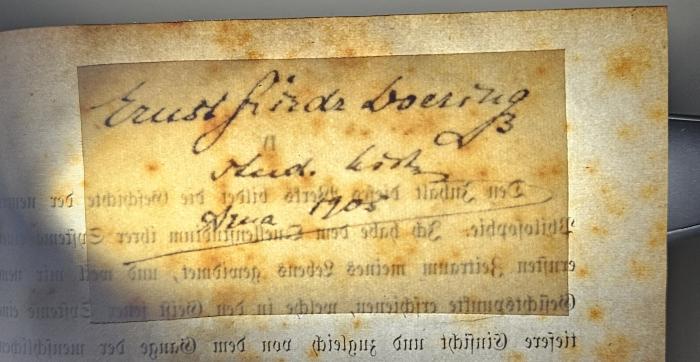 Ernst Friedr Doering
stud.
Jena 1905
Den Inhalt dieses Werks bildet die Geschichte der
Philosophie. Ich habe dem Quellenstudium ihrer Systeme
ernsten Zeitraum meines Lebens gewidmet, und weil mir
Gesichtspunkte erschienen, welche in den Geist jener Systeme
tiefere Einsicht und zugleich von dem Gange der